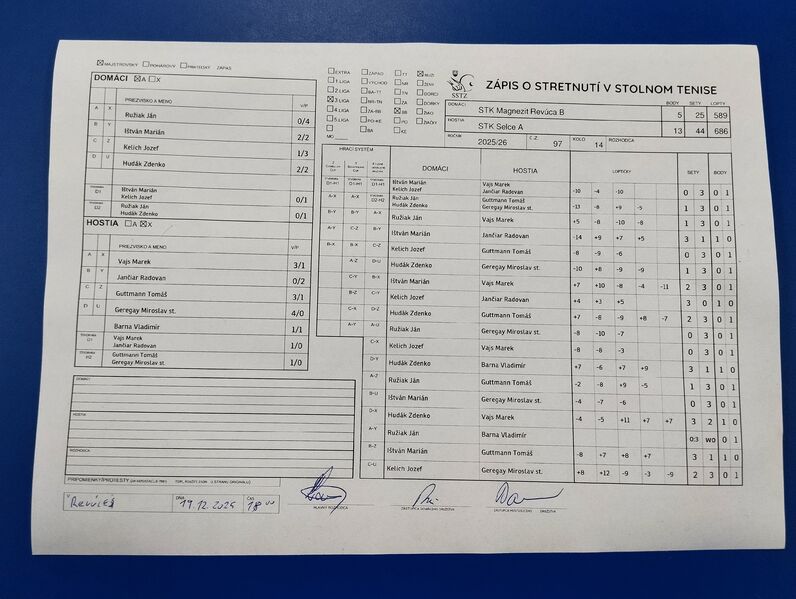 MAJSTROVSKÝ POHÁROVÝ PRIATEĽSKÝ ZÁPAS
DOMÁCI A X
PRIEZVISKO A MENO V/P
A X Ružiak Ján 0/4
B Y Ištván Marián 2/2
C Z Kelich Jozef 1/3
D U Hudák Zdenko 2/2
D1 Ištván Marián
Kelich Jozef 0/1
D2 Ružiak Ján
Hudák Zdenko 0/1
HOSTIA A X
PRIEZVISKO A MENO V/P
A X Vajs Marek 3/1
B Y Jančiar Radovan 0/2
C Z Guttmann Tomáš 3/1
D U Geregay Miroslav st. 4/0
Barna Vladimír 1/1
Vajs Marek
Jančiar Radovan 1/0
H2 Guttmann Tomáš
Geregay Miroslav st. 1/0
DOMÁCI
HOSTIA
ROZHODCA
PRIPOMIENKY/PROTESTY
V Revúcej DŇA 19.12.2025 ČAS 18 00
HLAVNÝ ROZHODCA
EXTRA
1.LIGA
2.LIGA
3.LIGA
4.LIGA
5.LIGA
MO
ZÁPAD
VÝCHOD
BA-TT
BB
SSTZ
ZÁPIS O STRETNUTÍ V STOLNOM TENISE
BODY SETY LOPTY
DOMÁCI STK Magnezit Revúca B 5 25 589
HOSTIA STK Selce A 13 44 686
ROČNÍK 2025/26 Č.Z. 97 KOLO 14 ROZHODCA
HRACÍ SYSTÉM DOMÁCI HOSTIA LOPTIČKY SETY BODY
D1-H1 D1-H1 D1-H1 Ištván Marián
Kelich Jozef Vajs Marek
Jančiar Radovan -10 -4 -10 0 3 0 1
A-X A-X D2-H2 Ružiak Ján
Hudák Zdenko Guttmann Tomáš
Geregay Miroslav st. -13 -8 +9 -5 1 3 0 1
B-Y B-Y A-X Ružiak Ján Vajs Marek +5 -8 -10 -8 1 3 0 1
A-Y C-Z B-Y Ištván Marián Jančiar Radovan -14 +9 +7 +5 3 1 1 0
B-X B-X C-Z Kelich Jozef Guttmann Tomáš -8 -9 -6 0 3 0 1
A-Z D-U Hudák Zdenko Geregay Miroslav st. -10 +8 -9 -9 1 3 0 1
C-Y B-X Ištván Marián Vajs Marek +7 +10 -8 -4 -11 2 3 0 1
B-Z C-Y Kelich Jozef Jančiar Radovan +4 +3 +5 3 0 1 0
C-X D-Z Hudák Zdenko Guttmann Tomáš +7 -8 -9 +8 -7 2 3 0 1
A-Y A-U Ružiak Ján Geregay Miroslav st. -8 -10 -7 0 3 0 1
C-X Kelich Jozef Vajs Marek -8 -8 -3 0 3 0 1
D-Y Hudák Zdenko Barna Vladimír +7 -6 +7 +9 3 1 1 0
A-Z Ružiak Ján Guttmann Tomáš -2 -8 +9 -5 1 3 0 1
B-U Ištván Marián Geregay Miroslav st. -4 -7 -6 0 3 0 1
D-X Hudák Zdenko Vajs Marek -4 -5 +11 +7 +7 3 2 1 0
A-Y Ružiak Ján Barna Vladimír 0:3 wo 0 1
B-Z Ištván Marián Guttmann Tomáš -8 +7 +8 +7 3 1 1 0
C-U Kelich Jozef Geregay Miroslav st. +8 +12 -9 -3 -9 2 3 0 1